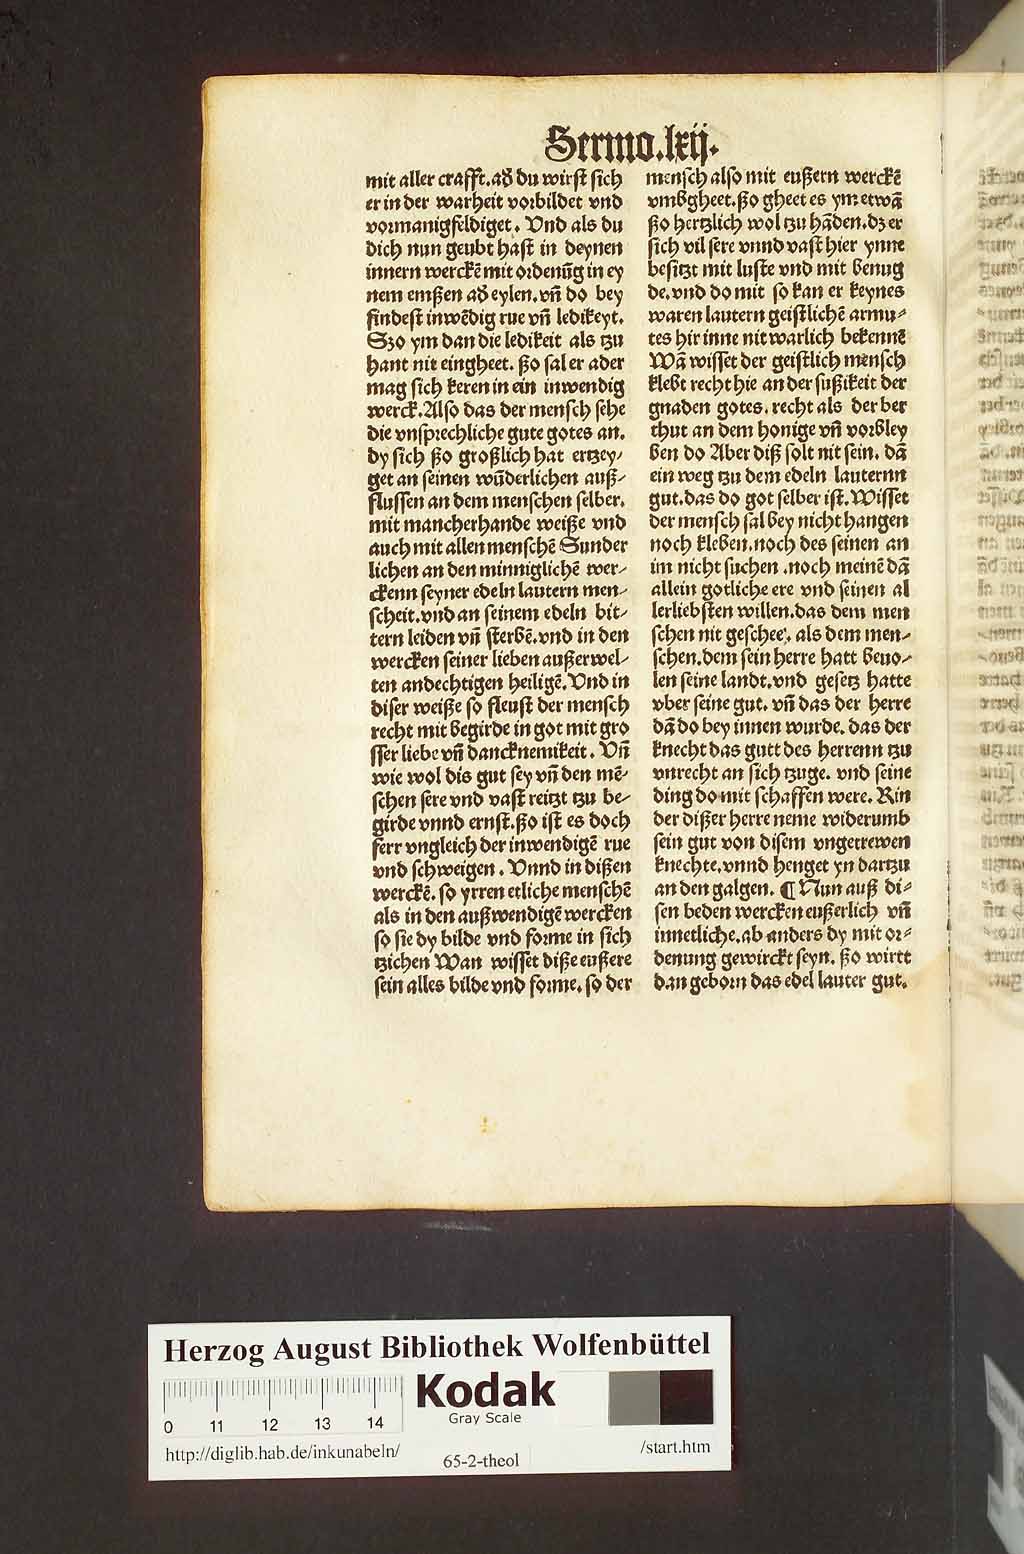 Sermo.lxij.
mit aller crafft.ad du wirst sich
er in der warheit vorbildet vnd
vormanigfeldiget. Vnd als du
dich nun geubt hast in deynen
innern werckē mit ordenūg in ey
nem emßen ad eylen.vn̄ do bey
findest inwēdig rue vn̄ ledikeyt.
Szo ym dan die ledikeit als tzu
hant nit eingheet. ßo sal er ader
mag sich keren in ein inwendig
werck.Also das der mensch sehe
die vnsprechliche gute gotes an.
dy sich ßo großlich hat ertzey-
get an seinen wūderlichen auß-
flussen an dem menschen selber.
mit mancherhande weiße vnd
auch mit allen menschē Sunder
lichen an den minniglichē wer-
ckenn seyner edeln lautern men-
scheit.vnd an seinem edeln bit-
tern leiden vn̄ sterbē.vnd in den
wercken seiner lieben außerwel-
ten andechtigen heiligē.Vnd in
diser weiße so fleust der mensch
recht mit begirde in got mit gro
sser liebe vn̄ dancknemikeit. Vn̄
wie wol dis gut sey vn̄ den mē-
schen sere vnd vast reitzt tzu be-
girde vnnd ernst.ßo ist es doch
ferr vngleich der inwendigē rue
vnd schweigen. Vnnd in dißen
werckē.so yrren etliche menschē
als in den außwendigē wercken
so sie dy bilde vnd forme in sich
tzichen Wan wisset diße eußere
sein alles bilde vnd forme.so der
mensch also mit eußern werckē
vmbgheet.ßo gheet es ym etwā
ßo hertzlich wol tzu hāden.dz er
sich vil sere vnnd vast hier ynne
besitzt mit luste vnd mit benug
de.vnd do mit so kan er keynes
waren lautern geistlichē armu-
tes hir inne nit warlich bekennē
Wā wisset der geistlich mensch
klebt recht hie an der sußikeit der
gnaden gotes.recht als der ber
thut an dem honige vn̄ vorbley
ben do Aber diß solt nit sein.dā
ein weg tzu dem edeln lauternn
gut.das do got selber ist.Wisset
der mensch sal bey nicht hangen
noch kleben.noch des seinen an
im nicht suchen .noch meinē dā
allein gotliche ere vnd seinen al
lerliebsten willen.das dem men
schen nit geschee, als dem men-
schen.dem sein herre hatt beuo-
len seine landt.vnd gesetz hatte
vber seine gut. vn̄ das der herre
dā do bey innen wurde.das der
knecht das gutt des herrenn tzu
vnrecht an sich tzuge. vnd seine
ding do mit schaffen were. Rin
der dißer herre neme widerumb
sein gut von disem vngetrewen
knechte.vnnd henget yn dartzu
an den galgen. ¶ Nun auß di-
sen beden wercken eußerlich vn̄
innetliche.ab anders dy mit or-
denung gewirckt seyn. ßo wirtt
dan geborn das edel lauter gut.
Herzog August Bibliothek Wolfenbüttel
Kodak
Gray Scale
0 11 12 13 14
http://diglib.hab.de/inkunabeln/
65-2-theol
/start.htm